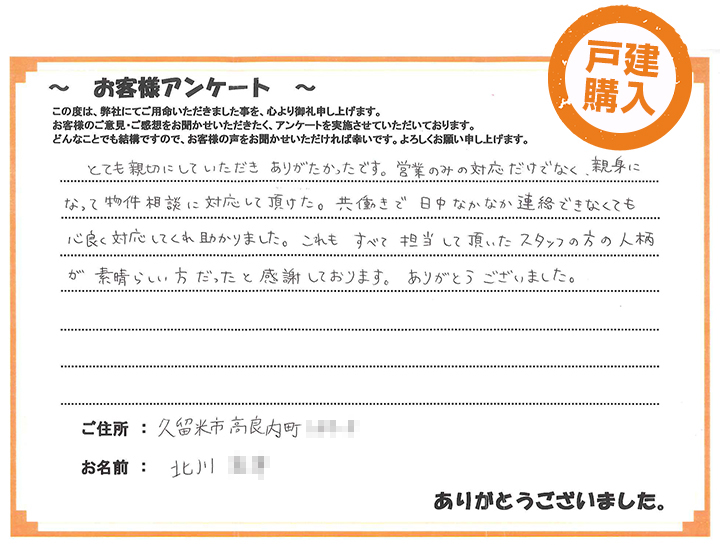 戸建
購入
～ お客様アンケート ～
この度は、弊社にてご用命いただきました事を、心より御礼申し上げます。
お客様のご意見・ご感想をお聞かせいただきたく、アンケートを実施させていただいております。
どんなことでも結構ですので、お客様の声をお聞かせいただければ幸いです。よろしくお願い申し上げます。
とても親切にしていただき ありがたかったです。営業のみの対応だけでなく、親身に
なって物件相談に対応して頂けた。共働きで 日中なかなか連絡できなくても
心良く対応してくれ助かりました。これも すべて 担当して頂いた スタッフの方の人柄
が 素晴らしい方だったと感謝しております。 ありがとうございました。
ご住所 : 久留米市高良内町
お名前 : 北川
ありがとうございました。